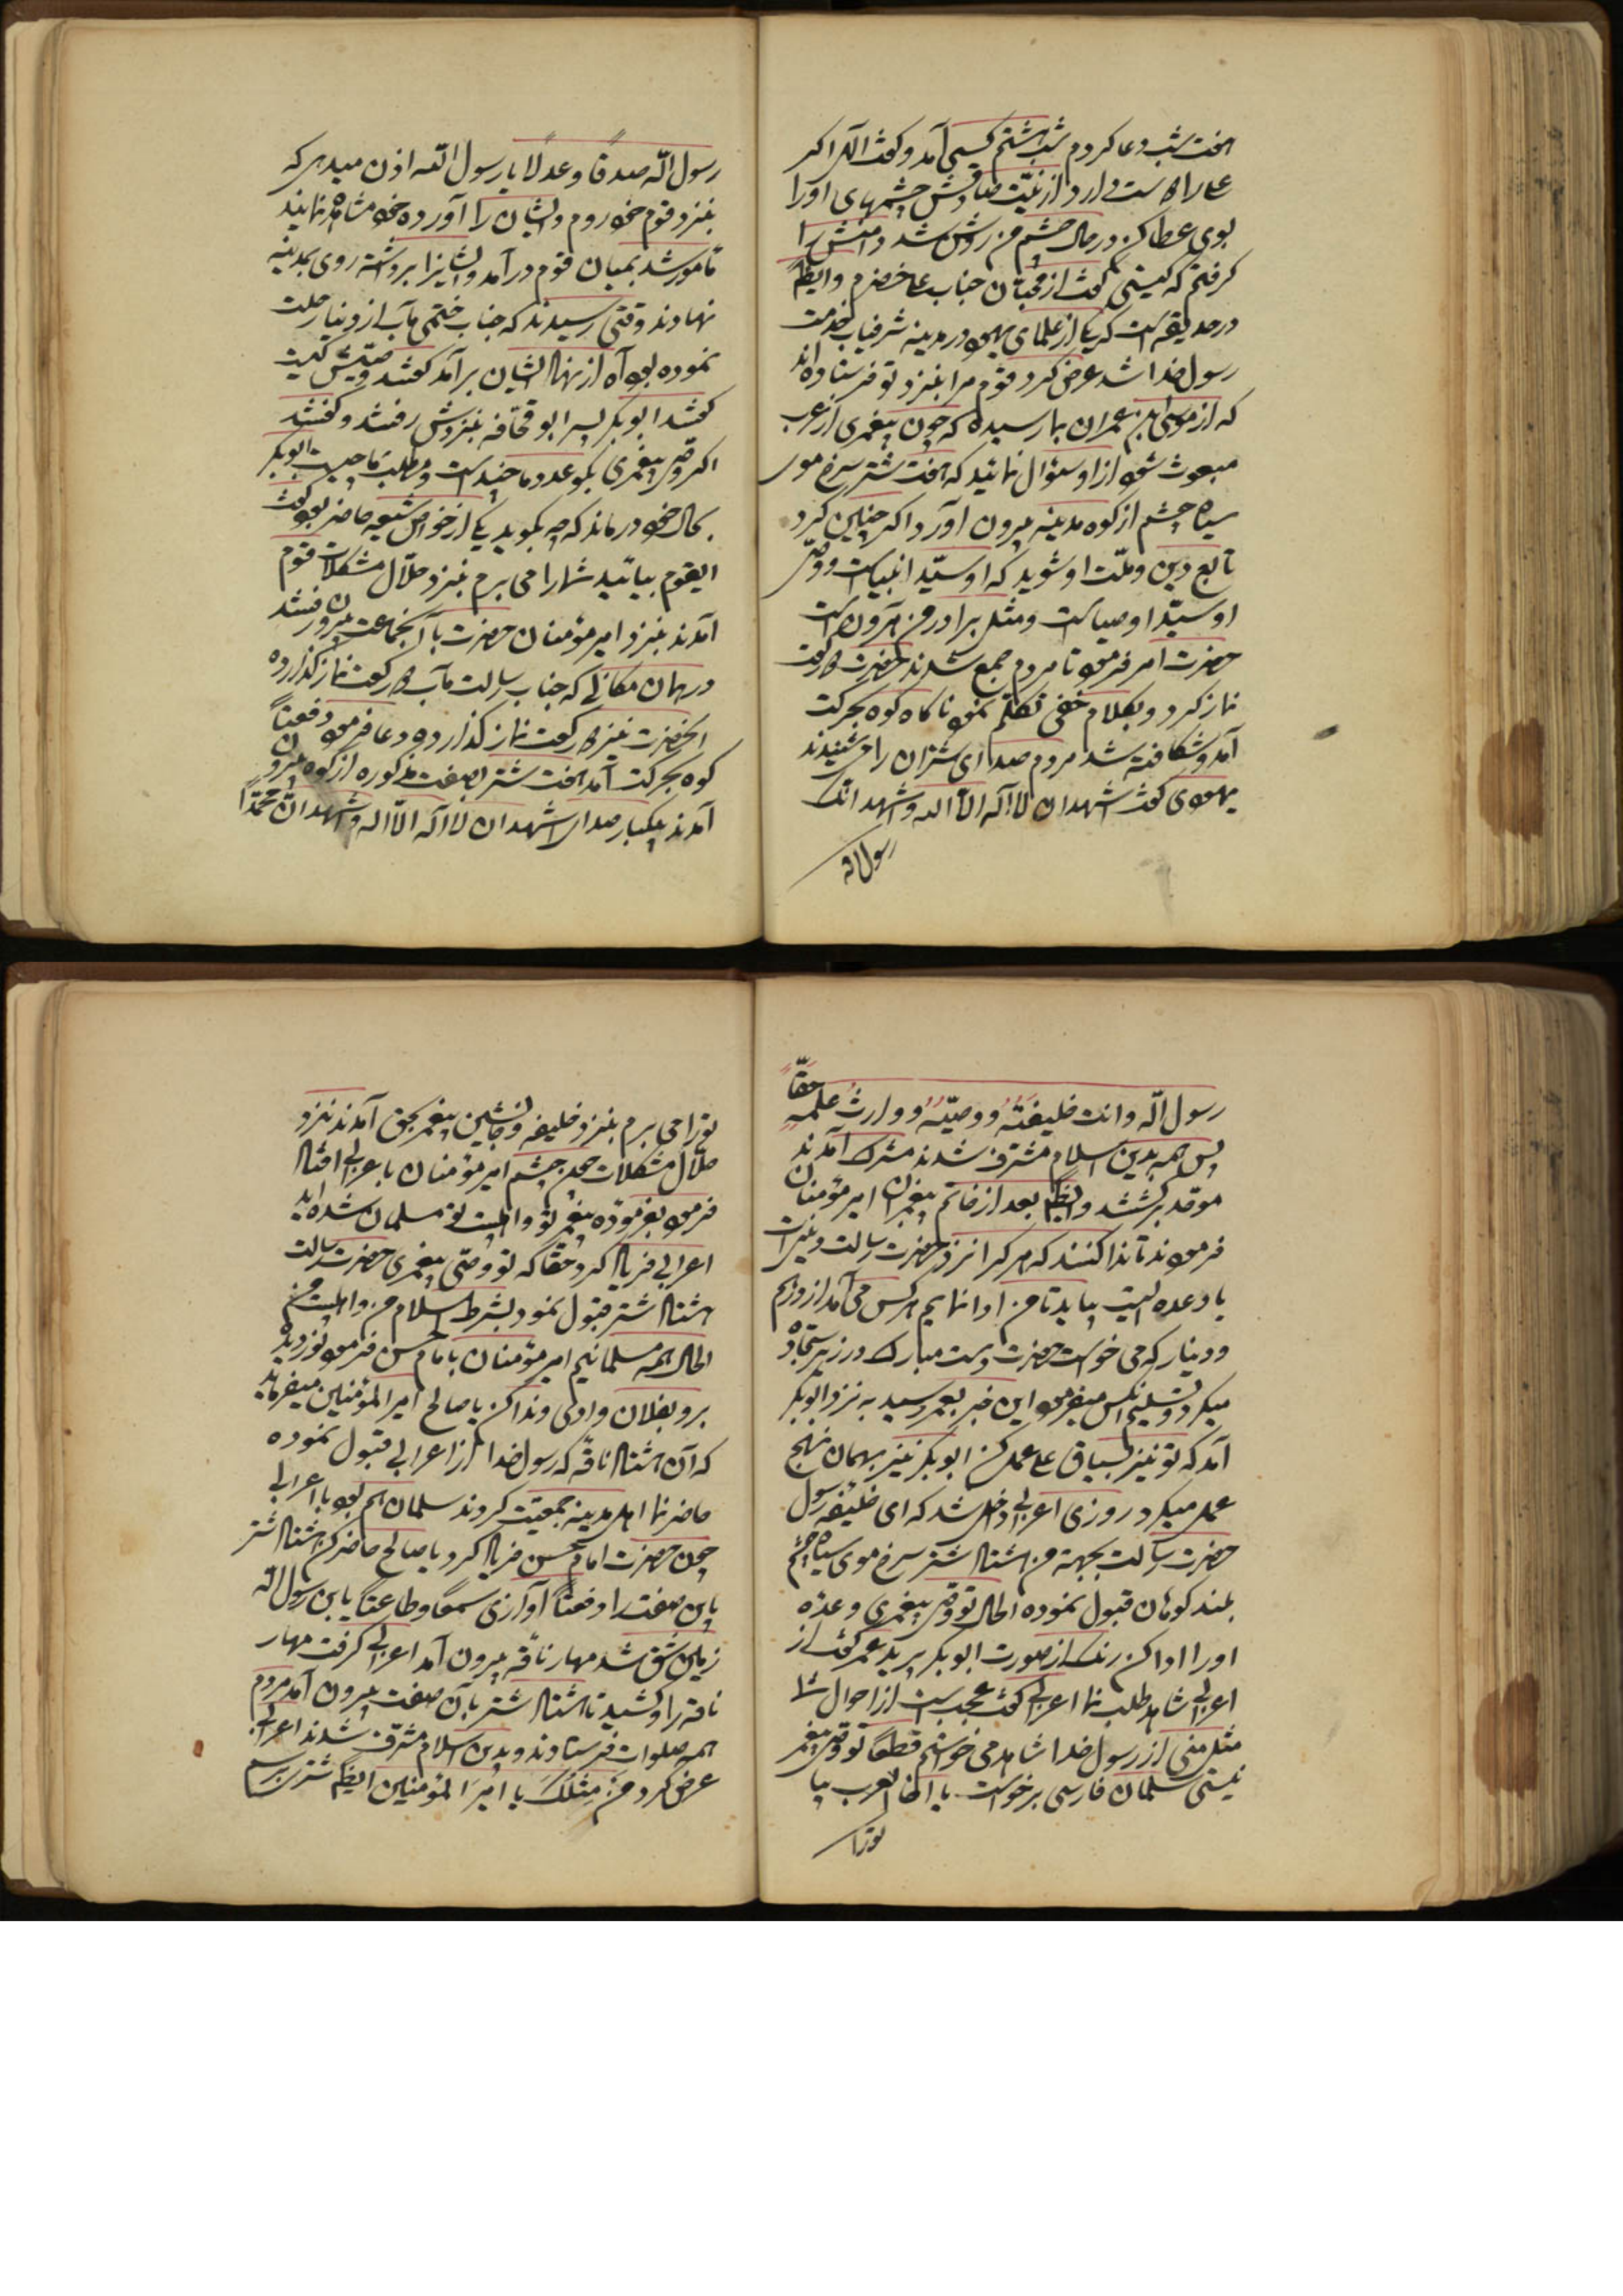 هفت شب دعا کردم شب هشتم کسی آمد و گفت اللهم اکر
علی را دوست دارد از نیّت صادقش چشمهای او را
بوی عطا کن در حال چشم من روشن شد دامنش را
کرفتم که کیستی گفت از محبّان جناب علی خضرم و ایظً
در حدیقه است که یکی از علمای یهود در مدینه شرفیاب خدمت
رسول خدا شد عرض کرد قوم مرا بنزد تو فرستاده‌اند
که از موسی بن عمران بما رسیده که چون پیغمبری از عرب
مبعوث شود از او سؤال نمائید که هفت شتر سرخ موی
سیاه چشم از کوه مدینه بیرون آورد اکر چنین کرد
تابع دین و ملّت او شوید که او سیّد انبیاست و وصی
او سیّد اوصیاست و مثل برادر من هارون است
حضرت امر فرمود تا مردم جمع شدند حضرت دو رکعت
نماز کرد و بکلام خفی تکلّم نمود ناکاه کوه بحرکت
آمد و شکافته شد مردم صدای شتران را شنیدند
یهودی گفت اشهد ان لا اله الا الله و اشهد انّک
رسول الله
رسول الله صدقًا و عدلًا یا رسول الله اذن میدهی که
بنزد قوم خود روم و ایشان را آورده خود مشاهده نمایند
مأمور شد بمیان قوم درآمد و ایشانرا برداشته روی بمدینه
نهادند وقتی رسیدند که جناب ختمی مآب از دنیا رحلت
نموده بود آه از نهاد ایشان برآمد کفتند وصیّش کیست
کفتند ابو بکر پسر ابو قحافه بنزدش رفتند و کفتند
اکر وصی پیغمبری بکو عدد ما چند است و مطلب ما چیست ابو بکر
بحال خود درماند که چه بکوید یکی از خواص شیعه حاضر بود گفت
ایقوم بیائید شما را می برم بنزد حلّال مشکلات قوم
آمدند بنزد امیر مؤمنان حضرت با آنجماعت بیرون رفتند
در همان مکانی که جناب رسالت مآب دو رکعت نماز کذارده
آنحضرت نیز دو رکعت نماز کذارده و دعا فرمود دفعتاً
کوه بحرکت آمد هفت شتر بصفت مذکوره از کوه بیرون
آمدند بیکبار صدای اشهد ان لا اله الّا الله و اشهد انّ محمّداً
رسول الله و انت خلیفتهُ و وصیّهُ و وارث علمهِ حقّاً
پس همه بدین اسلام مشرّف شدند مشرک آمدند
موحّد برکشتند و ایظً بعد از خاتم پیغمبران امیر مؤمنان
فرمودند تا ندا کنند که هر که را نزد حضرت رسالت دینی است
یا وعده ایست بیاید تا من ادا نمایم هر کس می آمد از درهم
و دینار که می خواست حضرت دست مبارک در زیر سجّاده
میکرد و تسلیم آنکس میفرمود این خبر بعمر رسید به نزد ابوبکر
آمد که تو نیز بسیاق علی عمل کن ابوبکر نیز بهمان نهج
عمل میکرد روزی اعرابی داخل شد که ای خلیفه رسول
حضرت رسالت بجهة من هشتاد شتر سرخ موی سیاه چشم
بلند کوهان قبول نموده الحال تو وصی پیغمبری وعده
او را ادا کن رنک از صورت ابوبکر پرید عمر کفت از
اعرابی شاهد طلب نما اعرابی کفت عجب است از احوال شما
مثل منی از رسول خدا شاهد می خواستم قطعًا تو وصی پیغمبر
نیستی سلمان فارسی برخواست یا اخا العرب بیا
تو را
تو را می برم بنزد خلیفه و جانشین پیغمبر بحق آمدند نزد
حلّال مشکلات چون چشم امیر مؤمنان باعرابی افتاد
فرمود بفرموده پیغمبر تو و اهلبیت تو مسلمان شده‌اید
اعرابی فریاد کرد حقّا که تو وصّی پیغمبری حضرت رسالت
هشتاد شتر قبول نمود بشرط اسلام من و اهلبیت من
الحال همه مسلمانیم امیر مؤمنان بامام حسن فرمود نور دیده
برو بفلان وادی و ندا کن یا صالح امیر المؤمنین میفرماید
که آن هشتاد ناقه که رسول خدا از اعرابی قبول نموده
حاضر نما اهل مدینه جمعیّت کردند سلمان هم بود با اعرابی
چون حضرت امام حسن فریاد کرد یا صالح حاضر کن هشتاد شتر
باین صفت را دفعتاً آوازی سمعًا و طاعتاً یابن رسول الله
زمین شق شد مهار ناقه بیرون آمد اعرابی کرفت مهار
ناقه را و کشید تا هشتاد شتر بآن صفت بیرون آمد مردم
همه صلوات فرستادند و بدین اسلام مشرّف شدند اعرابی
عرض کرد مَن مِثلُکَ یا امیر المؤمنین ایظً شتر